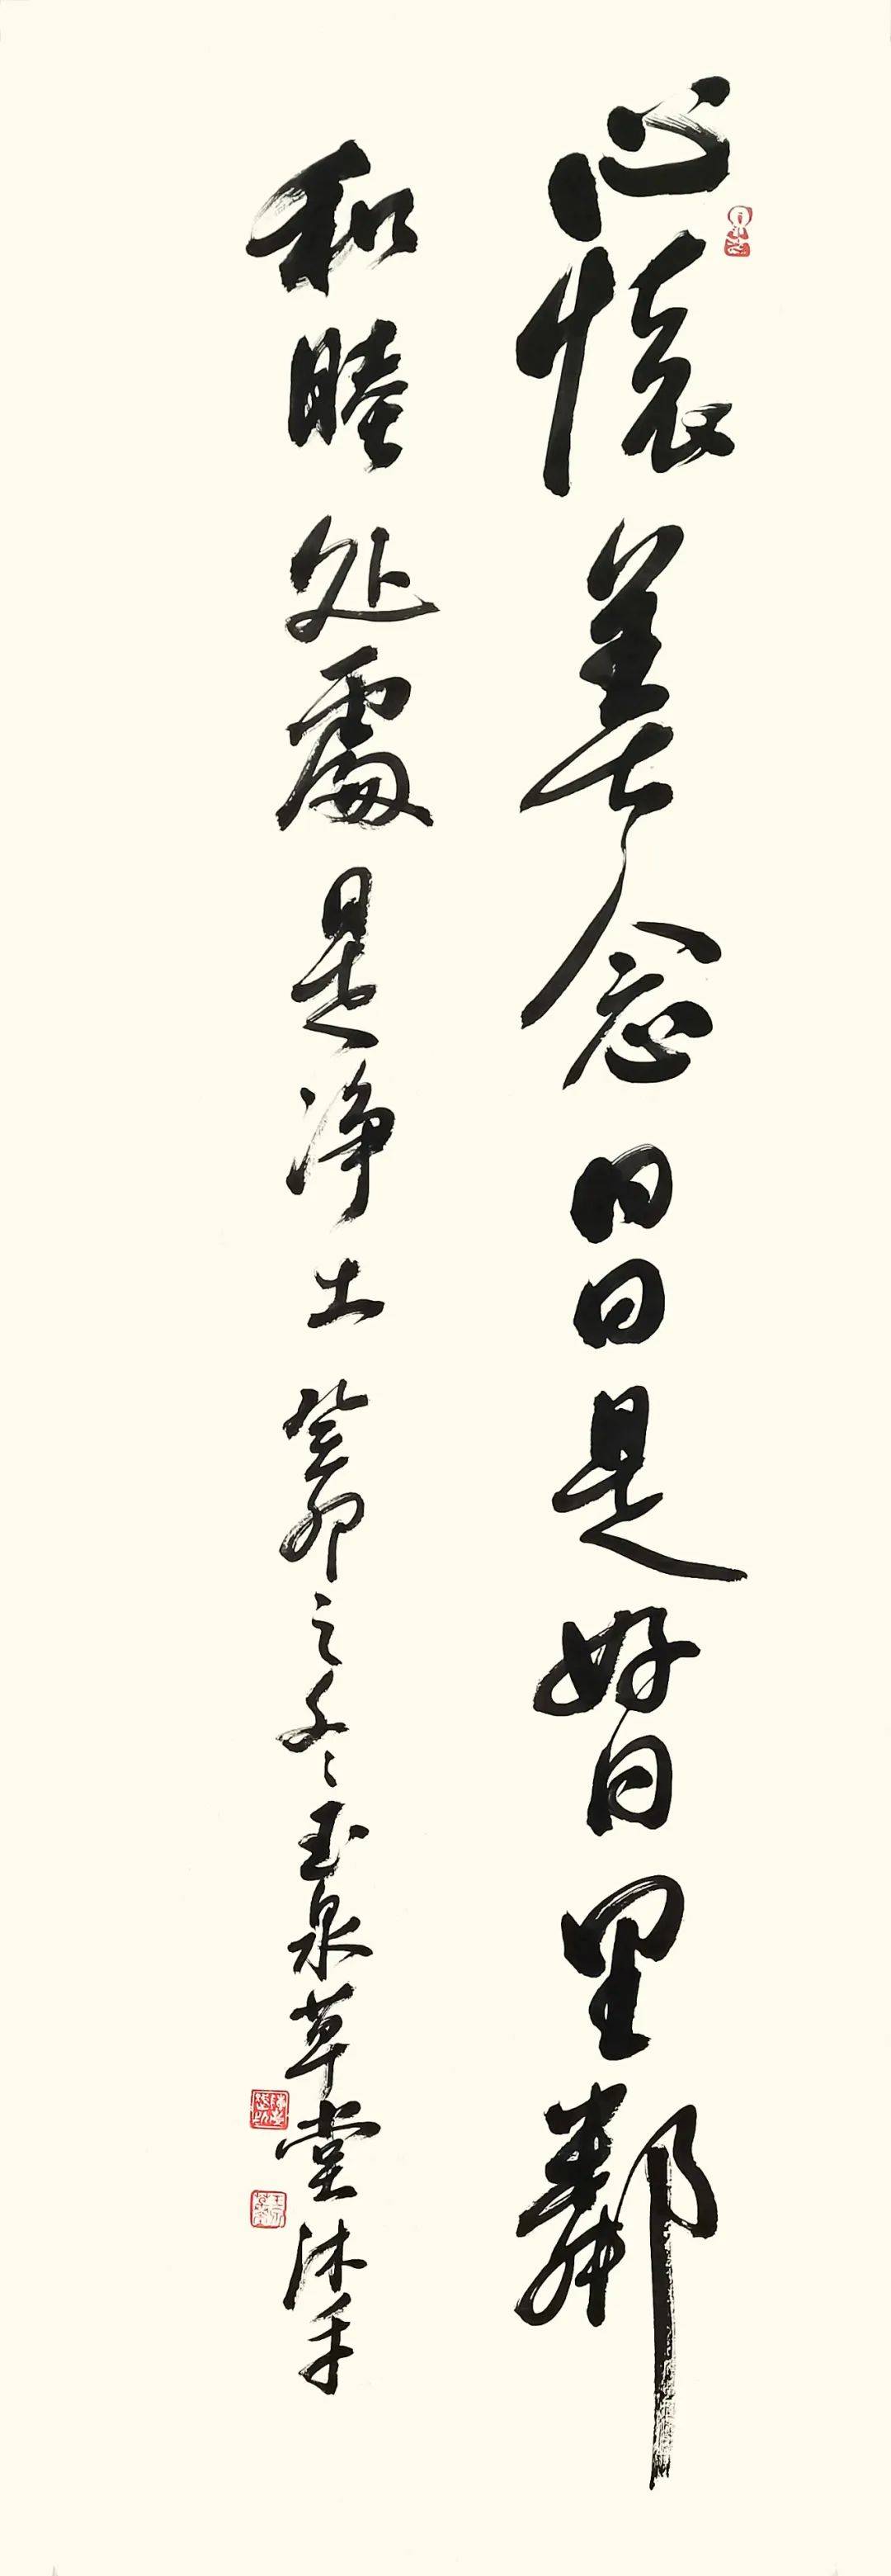 心懷善念日日是好日里鄰
和睦处處是净土癸卯之冬玉泉草堂沐手